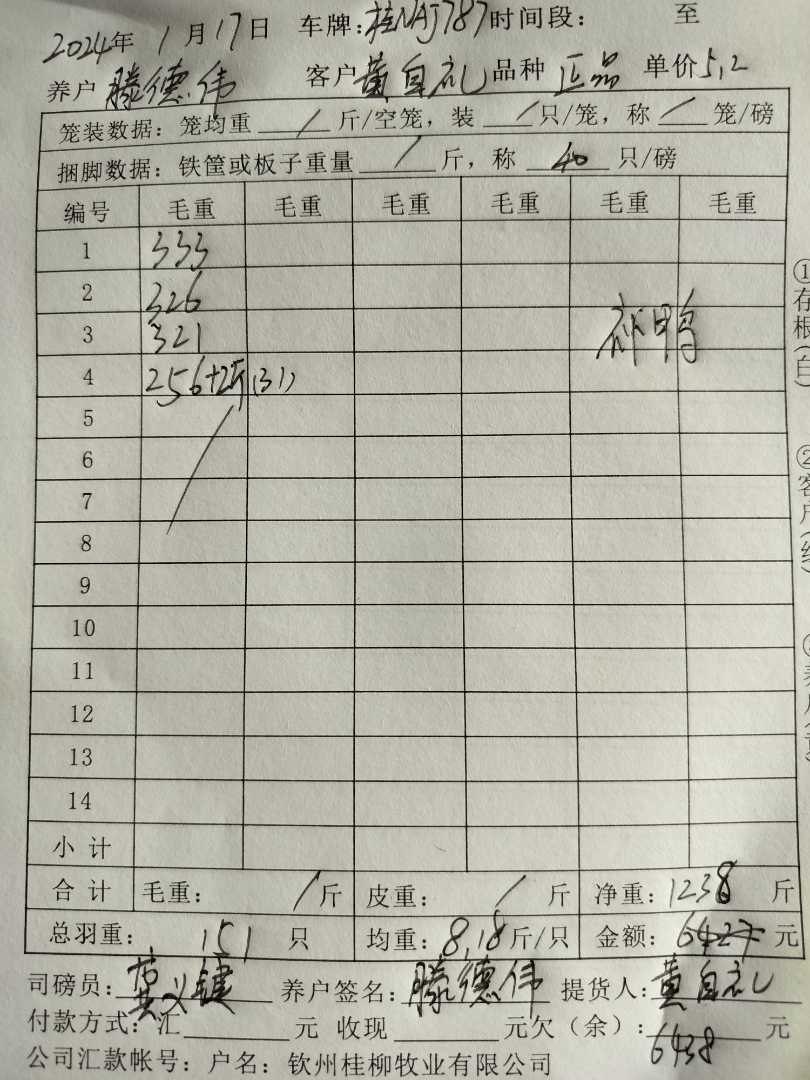 2024年 1月17日 车牌:桂NAJ787 时间段: 至
养户 滕德伟 客户 黄自礼 品种 正品 单价5,2
笼装数据: 笼均重 / 斤/空笼, 装 / 只/笼, 称 / 笼/磅
捆脚数据: 铁筐或板子重量 / 斤, 称 40 只/磅
编号 毛重 毛重 毛重 毛重 毛重 毛重
1 333
2 326
3 321 鸭
4 256+2斤(31)
5
6
7
8
9
10
11
12
13
14
小计
合计 毛重: / 斤 皮重: / 斤 净重: 1238 斤
总羽重: 151 只 均重: 8,18 斤/只 金额: 6427 元
司磅员: 黄义键 养户签名: 滕德伟 提货人: 黄自礼
付款方式: 汇 元 收现 元欠(余): 6438 元
公司汇款帐号: 户名: 钦州桂柳牧业有限公司
①存根(白)
②客户(红)